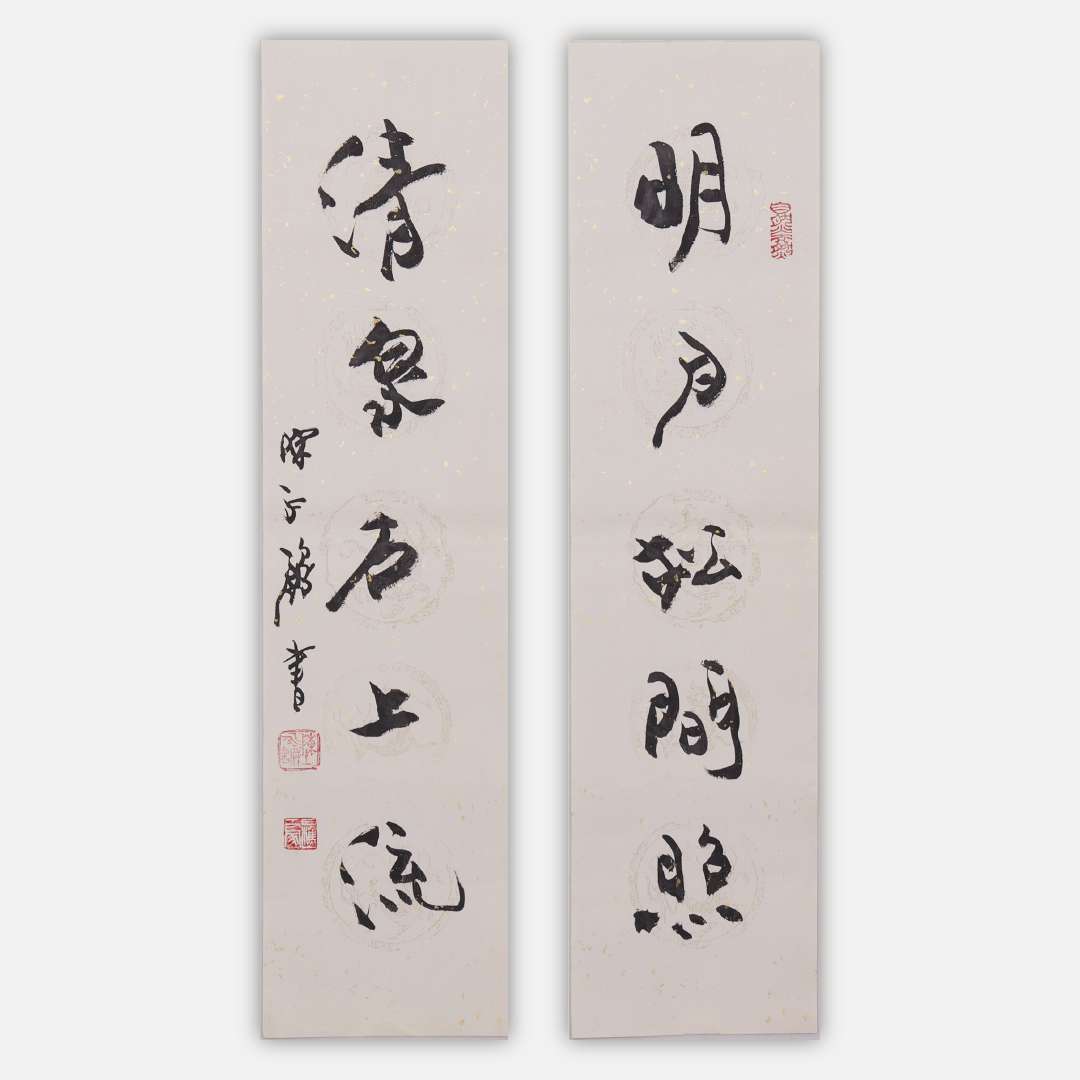 明月松間照
清泉石上流
陳 書